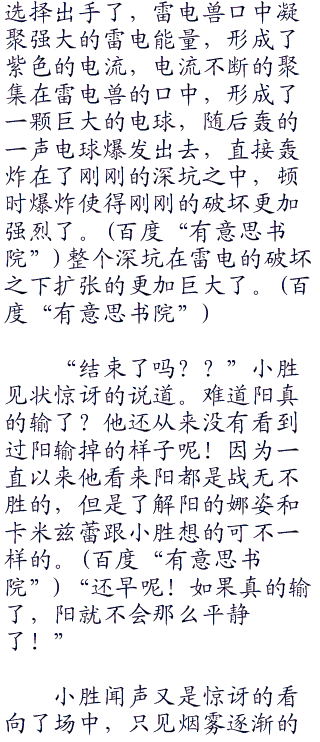 选择出手了，雷电兽口中凝
聚强大的雷电能量，形成了
紫色的电流，电流不断的聚
集在雷电兽的口中，形成了
一颗巨大的电球，随后轰的
一声电球爆发出去，直接轰
炸在了刚刚的深坑之中，顿
时爆炸使得刚刚的破坏更加
强烈了。(百度“有意思书
院”)整个深坑在雷电的破坏
之下扩张的更加巨大了。(百
度“有意思书院”)
“结束了吗？？”小胜
见状惊讶的说道。难道阳真
的输了？他还从来没有看到
过阳输掉的样子呢！因为一
直以来他看来阳都是战无不
胜的，但是了解阳的娜姿和
卡米兹蕾跟小胜想的可不一
样的。(百度“有意思书
院”)“还早呢！如果真的输
了，阳就不会那么平静
了！”
小胜闻声又是惊讶的看
向了场中，只见烟雾逐渐的